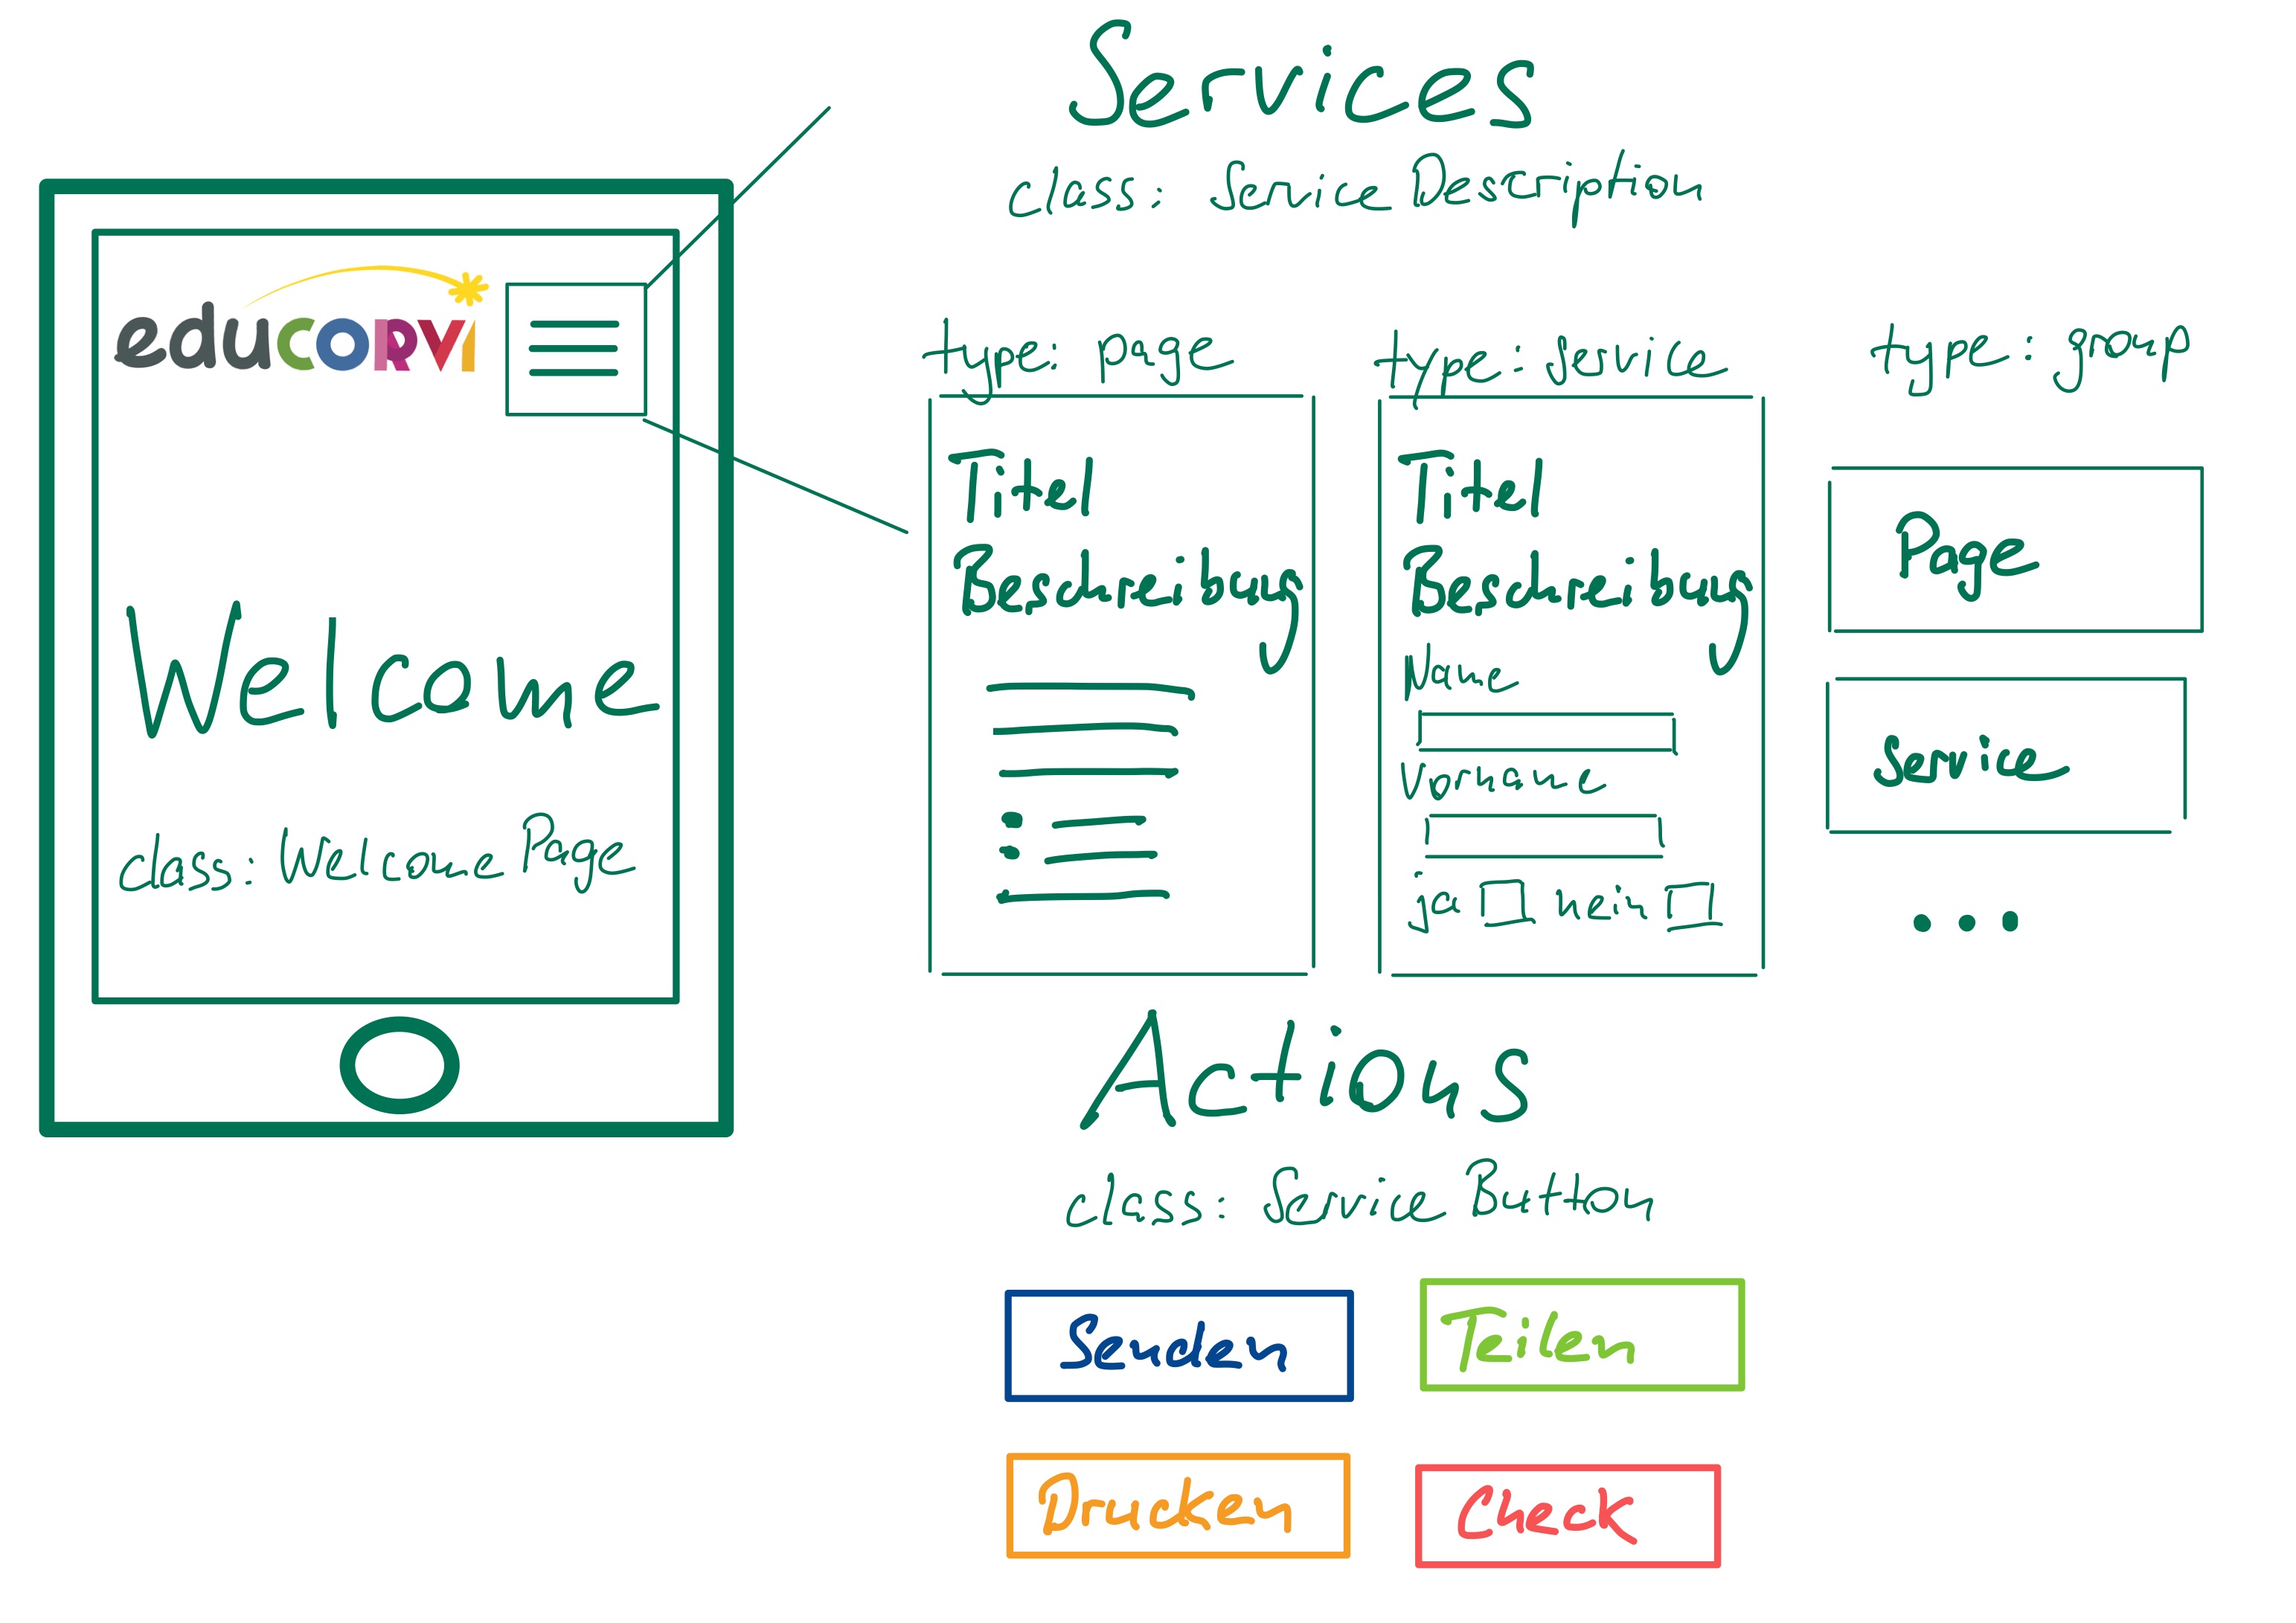 educorvi
Welcome
class: WelcomePage
Services
class: ServiceDescription
type: page
Titel
Beschreibung
type: service
Titel
Beschreibung
Name
Vorname
ja nein
type: group
Page
Service
...
Actions
class: ServiceButton
Senden
Teilen
Drucken
Check